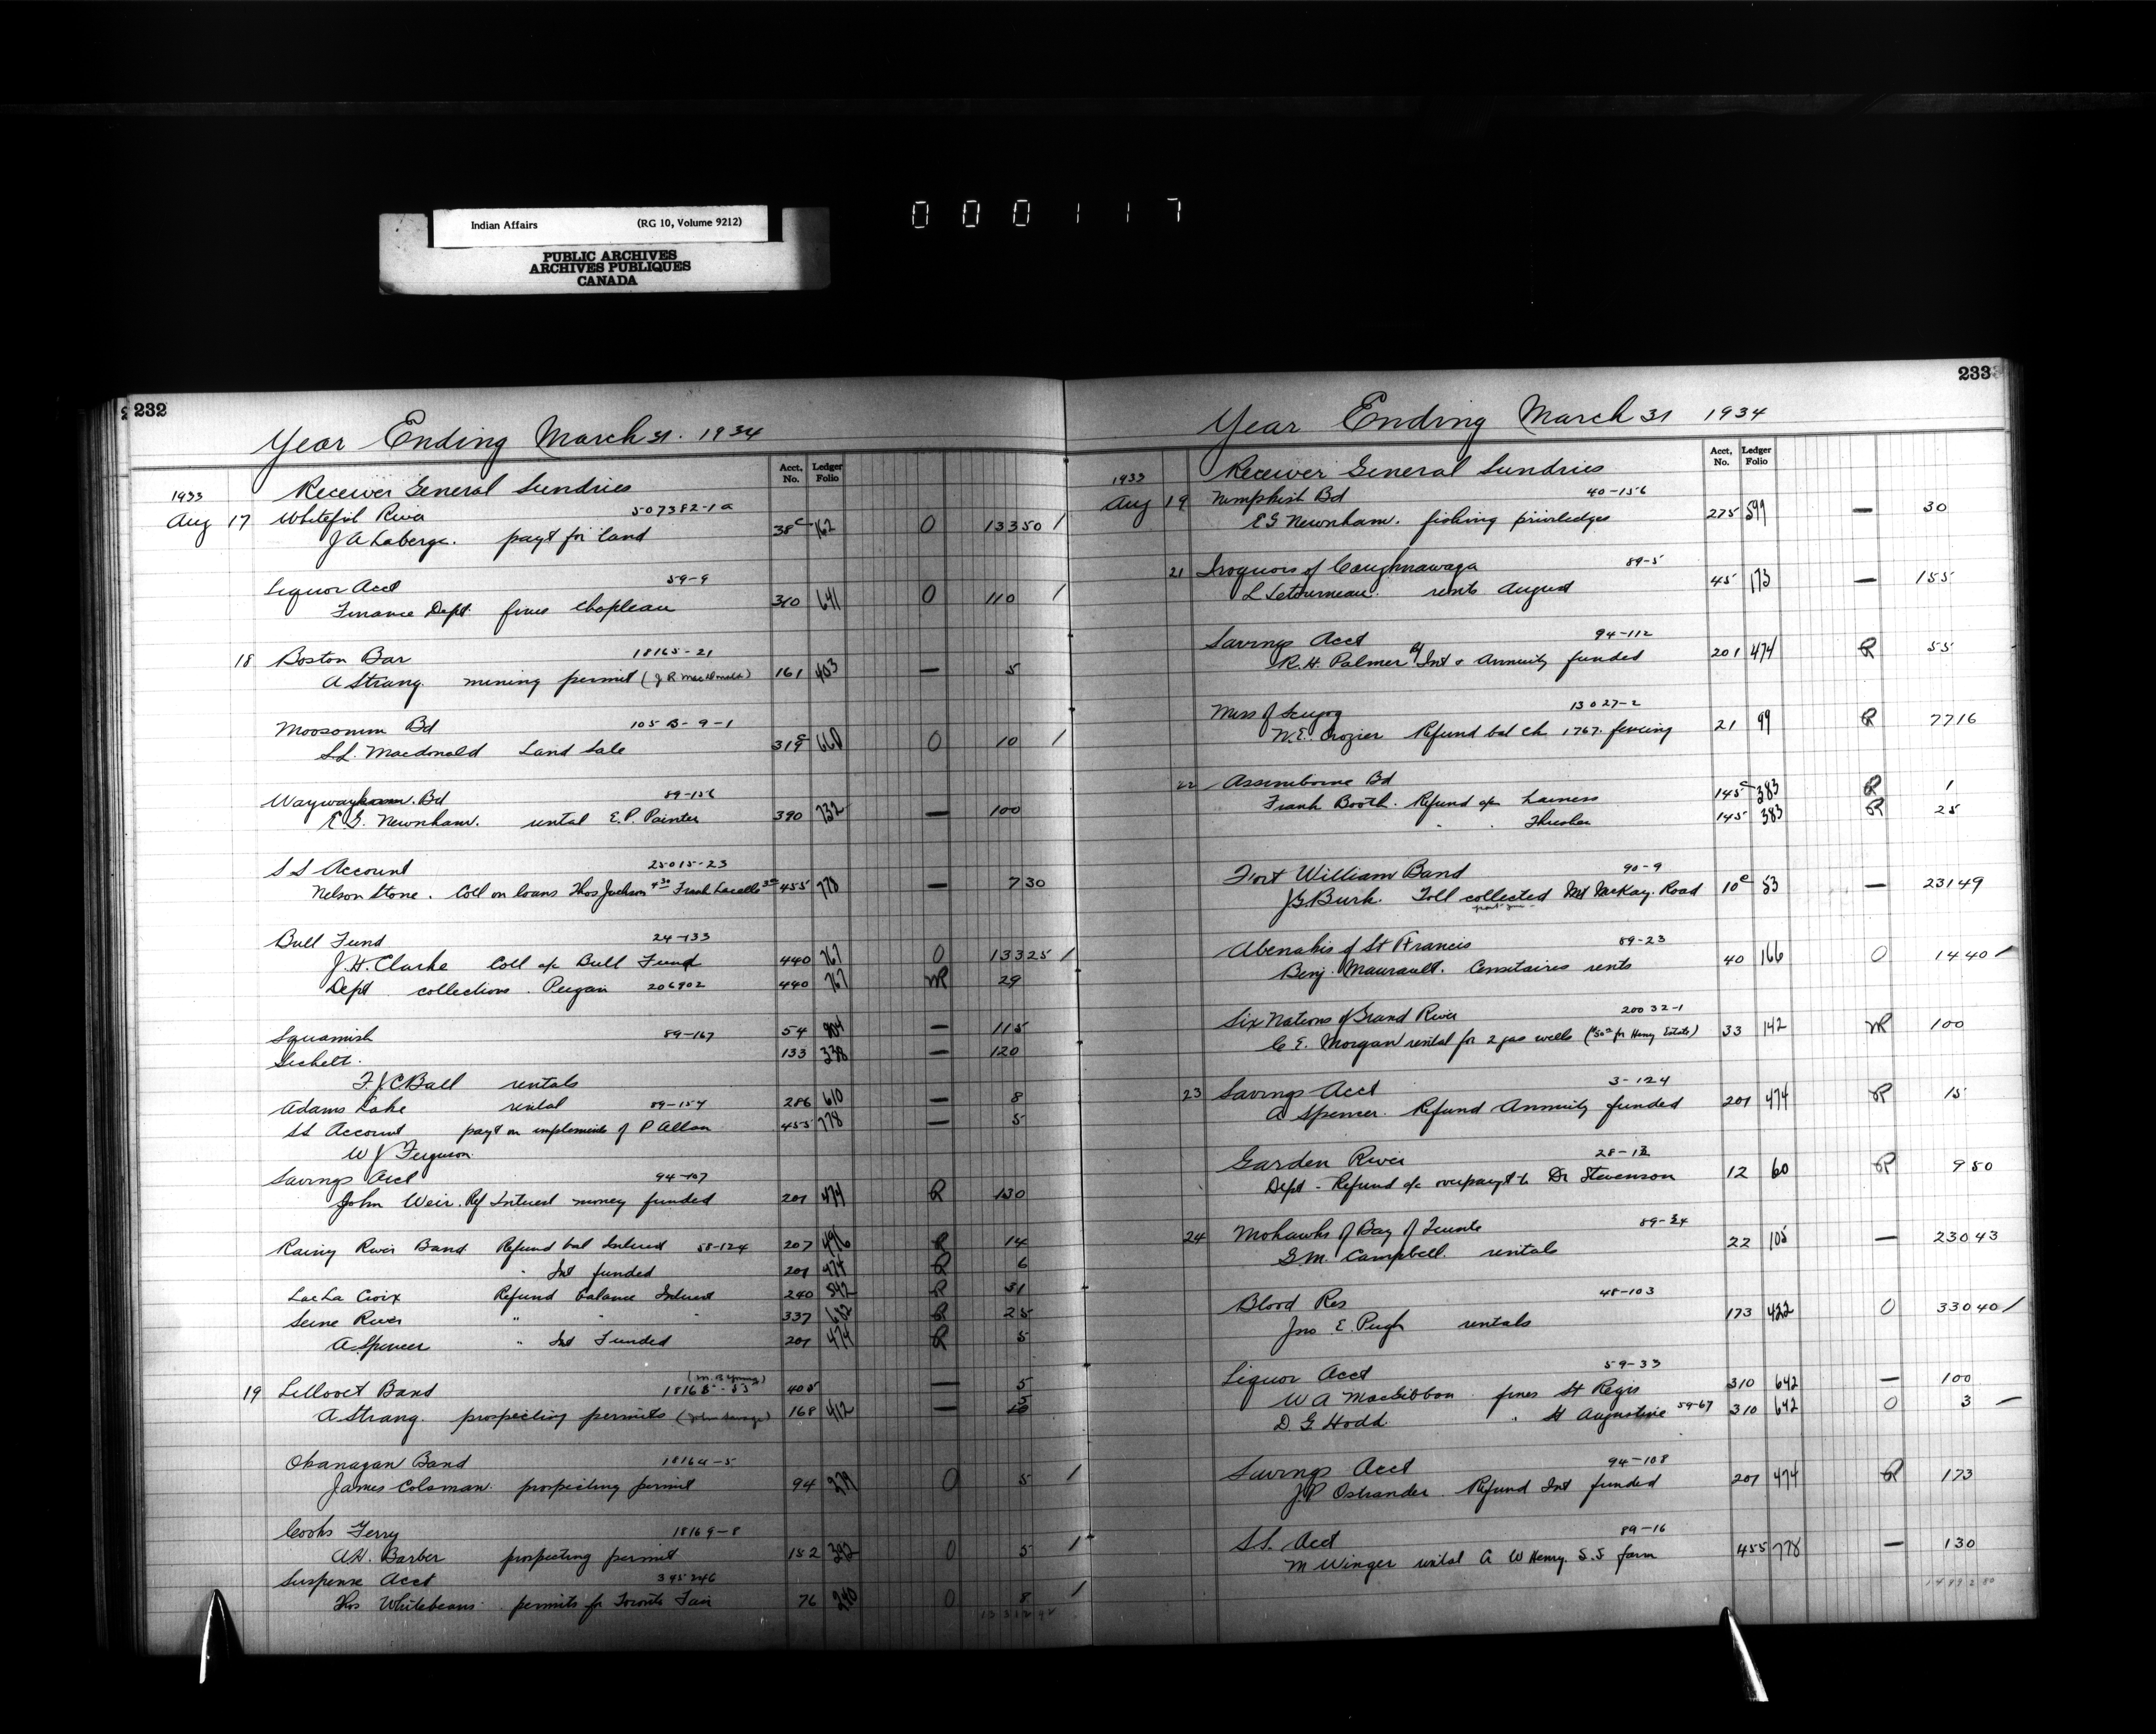 Indian Affairs (RG 10, Volume 9212)
PUBLIC ARCHIVES
ARCHIVES PUBLIQUES
CANADA
000117
232
Year Ending March 31. 1934
Acct. No. Ledger Folio
1933 Receiver General Sundries
Aug 17 Whitefish River 507382-1a
J A Laberge. payt for land 38c 162 O 133 50 /
Liquor Acct 59-9
Finance Dept. fines Chapleau 310 641 O 110 /
18 Boston Bar 18165-21
A Strang. mining permit (J R MacDonald) 161 403 — 5
Moosomin Bd 105 B-9-1
S.L. Macdonald Land Sale 319c 660 O 10 /
Bd 89-156
E G. Newnham. rental E.P. Painter 390 732 — 100
S S Account 25015-23
Nelson Stone. Coll on loans Thos Jackson 4 30 Frank Lacelle 3 00 455 778 — 7 30
Bull Fund 24-133
J.H. Clarke Coll a/c Bull Fund 440 767 O 133 25 /
Dept collections. Peigan 206902 440 767 NR 29
Squamish 89-167 54 — 115
Sechelt. 133 338 — 120
F. J C Ball rentals
Adams Lake rental 89-154 286 610 — 8
SS Account payt on implements of P Allan 455 778 — 5
W J Ferguson.
Savings Acct 94-107
John Weir. Ref Interest money funded 201 474 R 130
Rainy River Band Refund bal Interest 58-124 207 496 R 14
" Int funded 201 474 R 6
Lac La Croix Refund balance Interest 240 542 R 31
Seine River " " " 337 R 25
A. Spencer " Int Funded 201 474 R 5
(M. B Young)
19 Lillooet Band 18165-53 405 — 5
A Strang. prospecting permits (John Savage) 168 412 — 5
Okanagan Band 18164-5
James Colsman. prospecting permit 94 279 O 5 /
Cooks Ferry 18169-8
A.H. Barber prospecting permit 152 392 O 5 /
Suspense Acct 395246
Thos Whitebeans. permits for Toronto Fair 76 240 O 8 /
233
Year Ending March 31 1934
Acct. No. Ledger Folio
1933 Receiver General Sundries
Aug 19 Nimpkish Bd 40-156
E G Newnham. fishing priviledges 275 599 — 30
21 Iroquois of Caughnawaga 89-5
L Letourneau. rents August 45 173 — 155
Savings Acct 94-112
R. H. Palmer Ref Int & Annuity funded 201 474 R 55
Miss of Scugog 13027-2
W.E. Crozier Refund bal ch 1767. fencing 21 99 R 77 16
22 Assiniboine Bd
Frank Booth. Refund a/c harness 145c 383 R 1
" " Thresher 145 383 R 25
Fort William Band 90-9
J G Burk. Toll collected Mt McKay Road 10c 53 — 231 49
Abenakis of St Francis 89-23
Benj. Maurault. Censitaires rents 40 166 O 14 40 /
Six Nations of Grand River 20032-1
C E. Morgan rental for 2 gas wells ($50 00 for Henry Estate) 33 142 NR 100
23 Savings Acct 3-124
A Spencer. Refund Annuity funded 201 474 R 15
Garden River 28-12
Dept - Refund a/c overpayt to Dr Stevenson 12 60 R 9 50
24 Mohawks of Bay of Quinte 89-24
G.M. Campbell. rentals 22 105 — 230 43
Blood Res 48-103
Jno E. Pugh rentals 173 422 O 330 40 /
Liquor Acct 59-33
W A MacGibbon fines St Regis 310 642 — 100
D G Hodd. " St Augustine 59-67 310 642 O 3 —
Savings Acct 94-108
J.P Ostrander. Refund Int funded 201 474 R 173
S.S. Acct 89-16
M Winger rental A W Henry. S.S farm 455 778 — 130